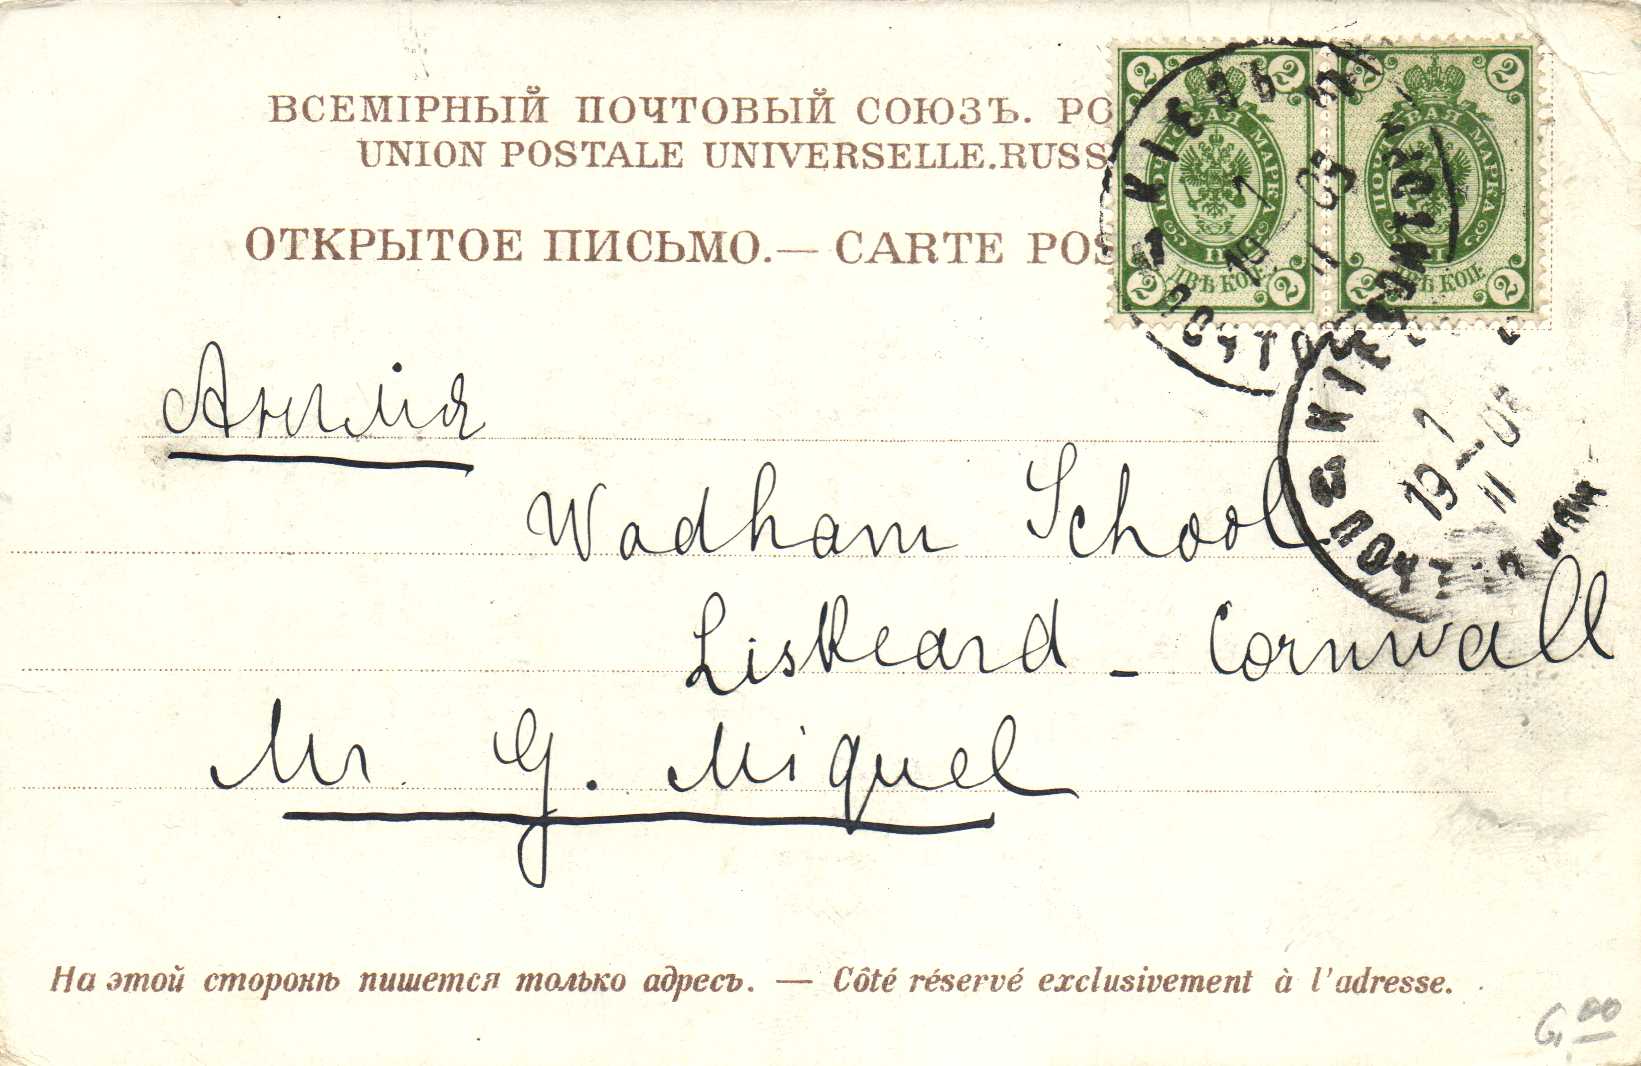 ВСЕМІРНЫЙ ПОЧТОВЫЙ СОЮЗЪ. РО
UNION POSTALE UNIVERSELLE.RUSS
ОТКРЫТОЕ ПИСЬМО.— CARTE POS
2 2
ПОЧТОВАЯ МАРКА
ДВѢ КОП.
2 2
2 2
ПОЧТОВАЯ МАРКА
ДВѢ КОП.
2 2
КІЕВЪ
7
19 — 03
II
ПОЧТОВ
КІЕВ
7
19 —
II
ПОЧТ
Англія
Wadham School
Liskeard - Cornwall
Mr G. Miquel
На этой сторонѣ пишется только адресъ. — Côté réservé exclusivement à l'adresse.
6,00